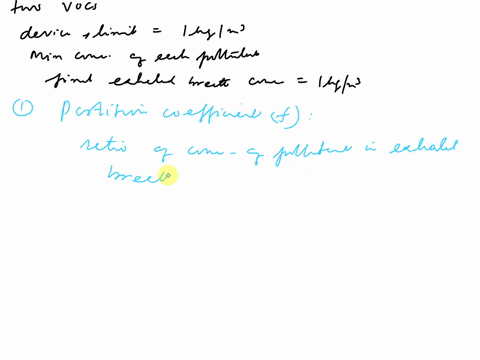 two VOCs
device's limit = 1 kg/m³
Min conc. of each pollutant
final exhaled breath conc = 1 kg/m³
① Partition coefficient (f):
ratio of conc- of pollutant in exhaled
breath